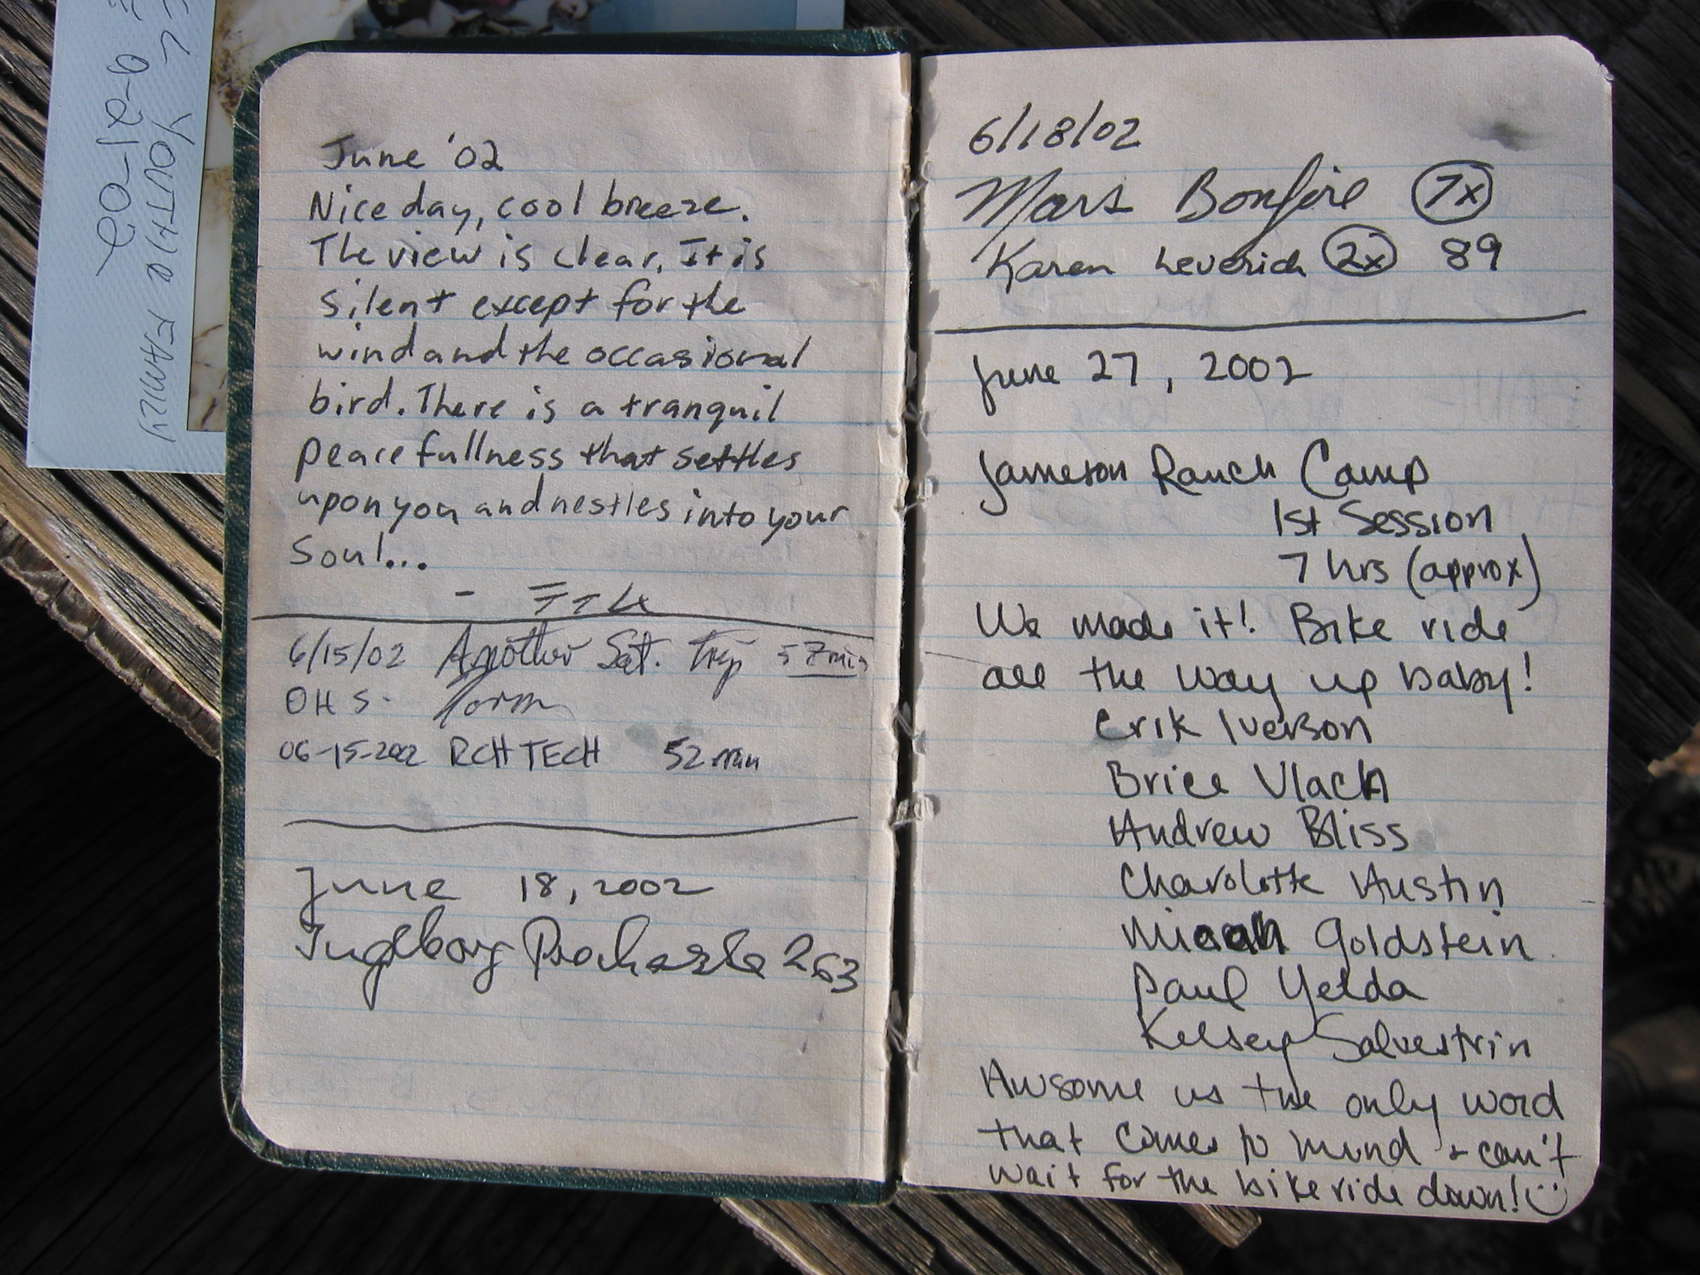 YOUTH(e) FAMILY
9-21-02
June '02
Nice day, cool breeze.
The view is clear. It is
silent except for the
wind and the occasional
bird. There is a tranquil
peacefullness that settles
upon you and nestles into your
soul...
6/15/02 Another Sat. trip 57 min
OHS.
06-15-2002 RCH TECH 52 min
June 18, 2002
Ingeborg Prochazka 263
6/18/02
Mars Bonfire 7x
Karen Leverich 2x 89
June 27, 2002
Jameson Ranch Camp
1st Session
7 hrs (approx)
We made it! Bike ride
all the way up baby!
Erik Iverson
Brice Vlach
Andrew Bliss
Charolotte Austin
Micah Goldstein
Paul Yelda
Kelsey Salvestrin
Awsome is the only word
that comes to mind & can't
wait for the bike ride down!